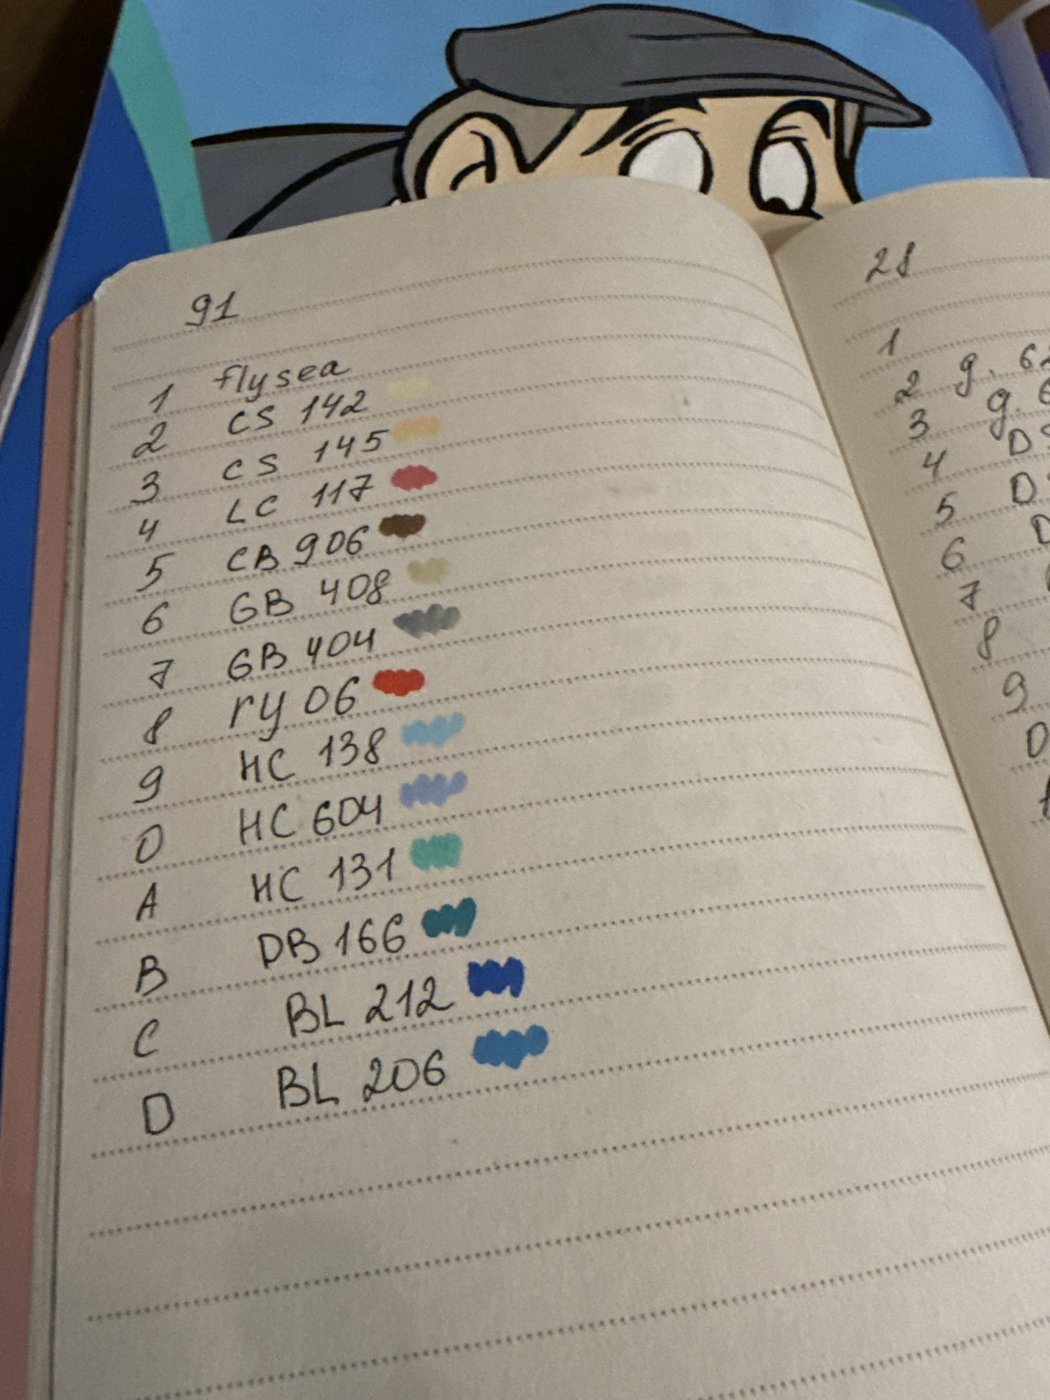 91
1 flysea
2 CS 142
3 CS 145
4 LC 117
5 CB 906
6 GB 408
7 GB 404
8 ry 06
9 HC 138
0 HC 604
A HC 131
B DB 166
C BL 212
D BL 206
28
1
2 g. 62
3 g. 6
4 D
5 D
6 D
7
8
9
0